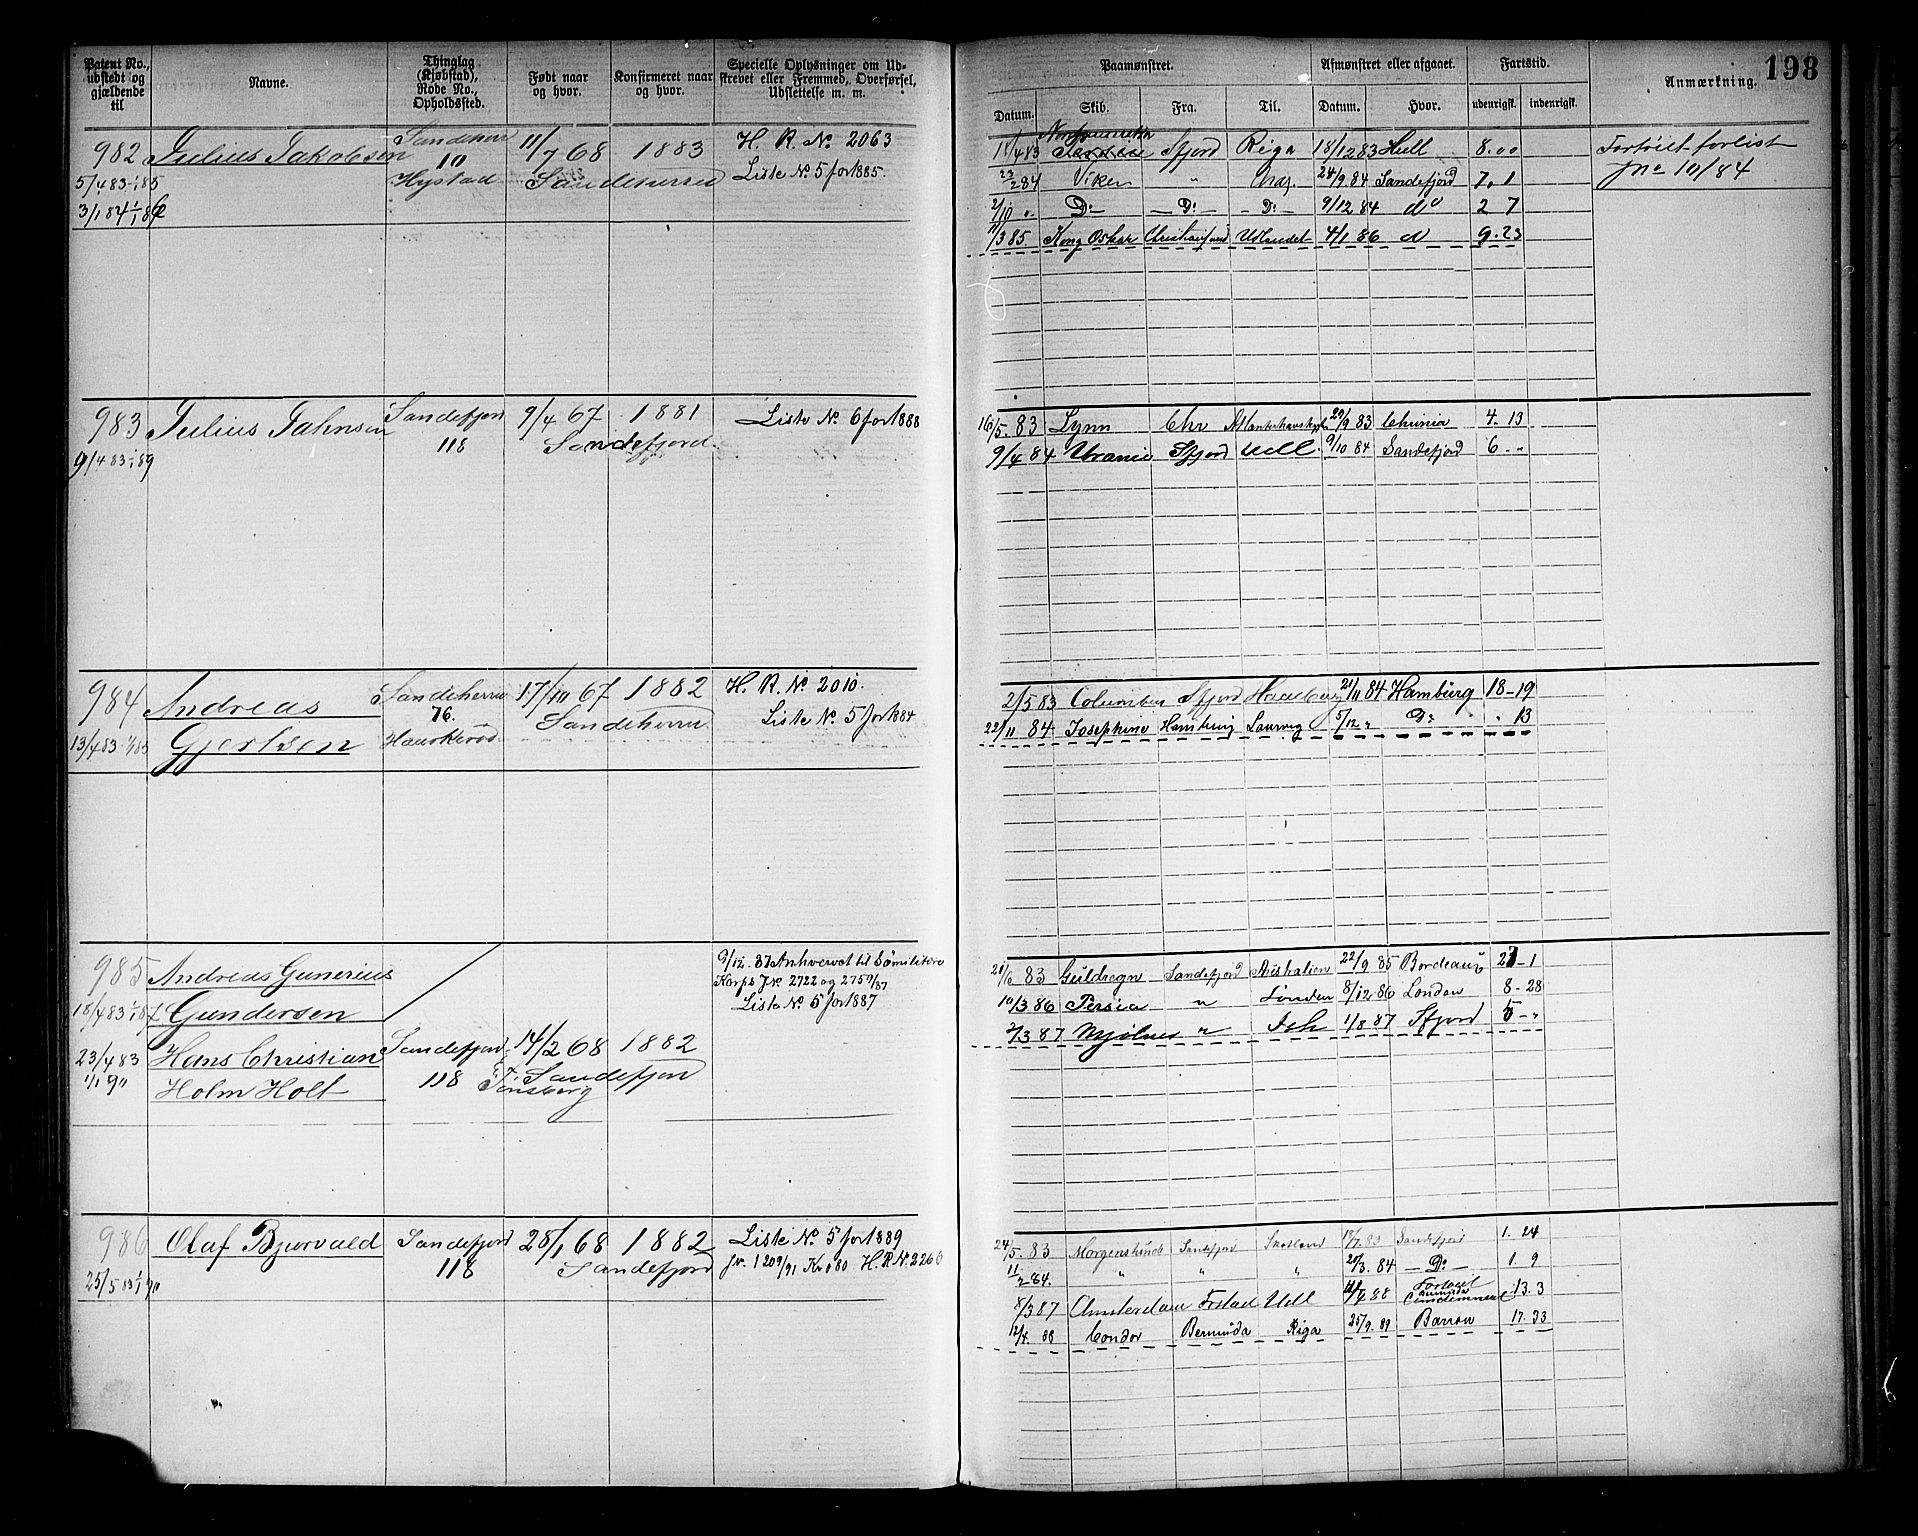 198
Patent No., udstedt og gjældende til
Navne.
Thinglag (Kjøbstad), Rode No., Opholdssted.
Født naar og hvor.
Konfirmeret naar og hvor.
Specielle Oplysninger om Udskrevet eller Fremmed, Overførsel, Udslettelse m. m.
Paamønstret.
Afmønstret eller afgaaet.
Fartstid.
Anmærkning.
Datum. Skib. Fra. Til. Datum. Hvor. udenrigsk. indenrigsk.
982 Julius Jakobsen Sandeherre 11/7 68 1883 H. R. No 2063
10
5/4 83-1/1 85 Hystad Sandeherred Liste No 5 for 1885.
3/1 84 1/1 86
18/4 83 Sfjord Riga 18/12 83 Hull 8.00 Fortøiet forlist
23/2 84 Viken " 24/9. 84 Sandefjord 7. 1 Jnr 10/84
2/10 " Do — Do — — Do — 9/12 84 do 2 7
11/3 85. Kong Oskar Christiansund Udlandet 4/1 86 d 9. 23
983 Julius Jahnsen Sandefjord 9/4 67 1881 Liste No 6 for 1888
9/4 83 1/1 89 118 Sandefjord
16/5. 83 Lynn Chr 20/9 83 4. 13
9/4 84 Urania Sfjord Udl. 9/10 84 Sandefjord 6 - "
984 Andreas Sandeherre 17/10 67 1882 H. R. No 2010.
76. Sandeherre Liste No 5 for 1884
13/4 83 1/1 85 Gjertsen Haukerød
2/5 83 Columbus Sfjord 21/11 84 Hamburg 18-19
22/11 84 Josephine Hamburg Laurvig 5/12 " Do " 13
985 Andreas Gunerius 9/12. 87 Anhvervet til Sømilitære
Korps Jr 2722 og 2759/87
18/4 83 1/1 87 Gundersen Liste No 5 for 1887
23/4 83 Hans Christian Sandefjord 14/2 68 1882
1/1 90 Holm Holt 118 Tønsberg Sandefjord
21/6 83 Guldregn Sandefjord Australien 22/9 85 Bordeaux 27-1
10/3 86 Persia " London 8/12 86 London 8-28
2/3 87 Mjølner " Ish 1/8 87 Sfjord 5 - "
986 Olaf Bjørvald Sandefjord 28/1 68 1882 Liste No 5 for 1889
118 Sandefjord Jr. 1209/91 Kr. 0,80 H. R. No 2266
25/5 83 1/1 90
24/5. 83 Morgenstund Sandefjord Skotland 18/7. 83 Sandefjord 1. 24
11/2 84. " " " 20/3. 84 — Do — 1. 9
8/3 87 Amsterdam Frstad Udl 11/4 88 13. 3
12/4. 88 Condor Bermuda Riga 25/9. 89 Barrow 17. 33